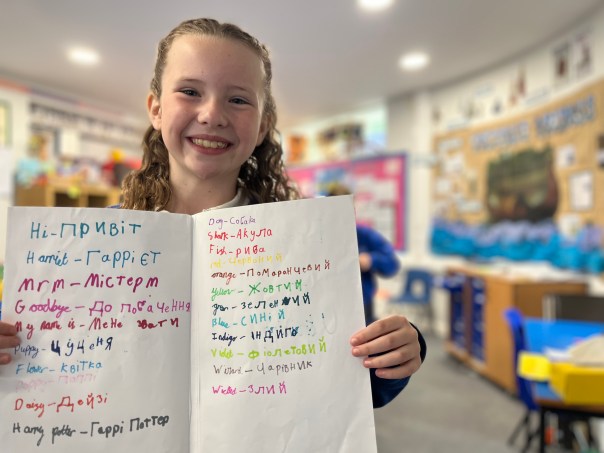 Hi-ПРИВІТ
Harriet-ГАРРІЄТ
Mr m-МІСТЕР М
Goodbye-ДО ПОБАЧЕННЯ
My name is-МЕНЕ ЗВАТИ
Puppy-ЦУЦЕНЯ
Flower-КВІТКА
Daisy-ДЕЙЗІ
Harry potter-ГАРРІ ПОТТЕР
Dog-СОбАКА
Shark-АКУЛА
Fish-рИВА
red-ЧЕРВОНИЙ
orange-ПОМАРАНЧЕВИЙ
yellow-ЖОВТИЙ
green-ЗЕЛЕНИЙ
Blue-СИНІЙ
Indigo-ІНДИГО
Violet-ФІОЛЕТОВИЙ
Wizard-ЧАРІВНИК
Wicked-ЗЛИЙ